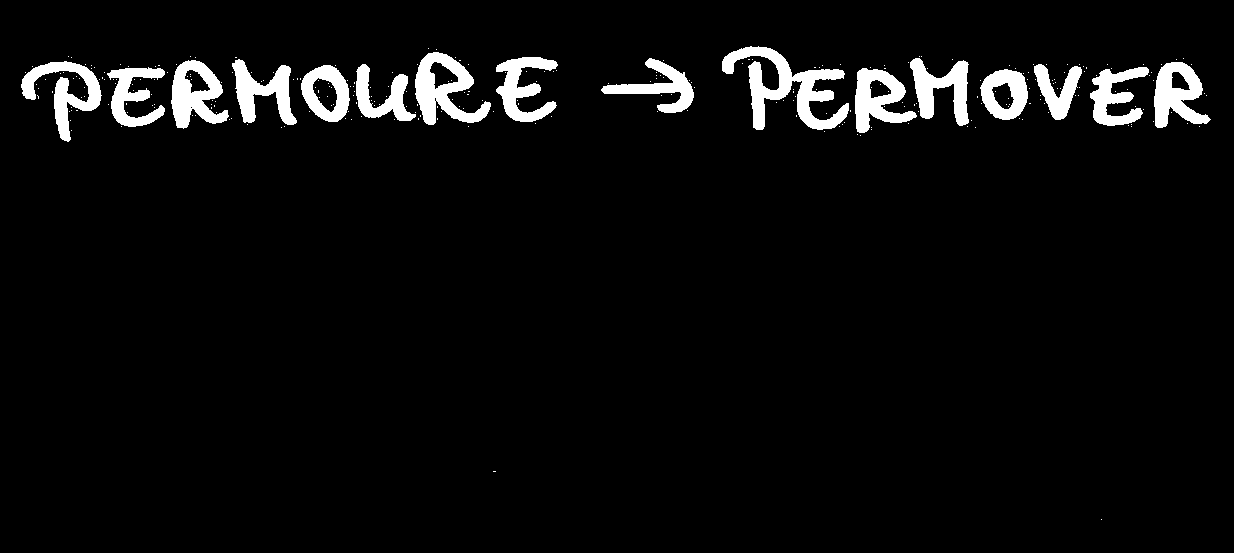 PERMOURE → PERMOVER